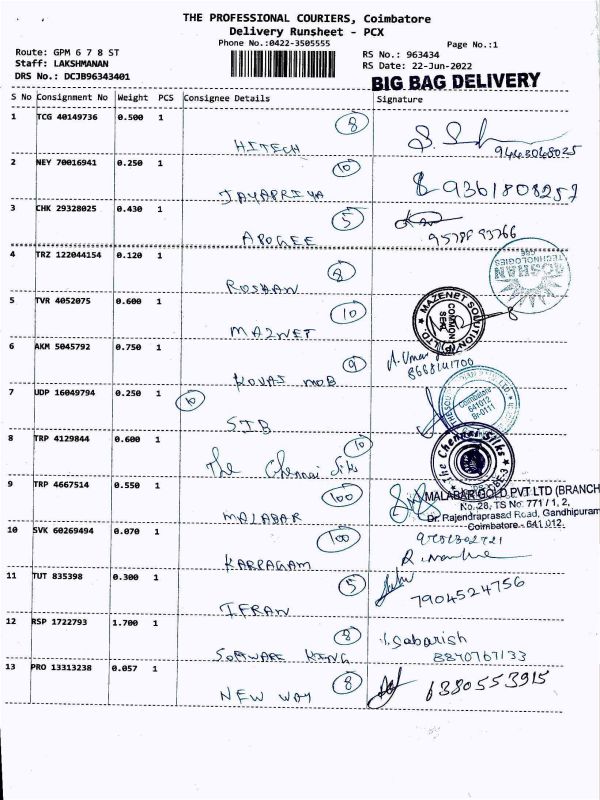 THE PROFESSIONAL COURIERS, Coimbatore
Delivery Runsheet - PCX
Phone No.:0422-3505555
Page No.:1
Route: GPM 6 7 8 ST
RS No.: 963434
Staff: LAKSHMANAN
RS Date: 22-Jun-2022
DRS No.: DCJB96343401
BIG BAG DELIVERY
S No Consignment No Weight PCS Consignee Details Signature
1 TCG 40149736 0.500 1 8
HITECH 9443048025
2 NEY 70016941 0.250 1 10
JAYAPRIYA 9361808257
3 CHK 29328025 0.430 1 5
APOGEE
4 TRZ 122044154 0.120 1 8
ROSHAN
ROSHAN TECHNOLOGIES
5 TVR 4052075 0.600 1 10
MAZNET
MAZENET SOLUTION (P) LTD. COMMON SEAL
6 AKM 5045792 0.750 1 9
KOVAI MOB 8668141700
7 UDP 16049794 0.250 1 10
SIB
Coimbatore
641012
Br-0111
8 TRP 4129844 0.600 1 10
The Chennai Silks
The Chennai Silks
9 TRP 4667514 0.550 1 100
MALABAR
MALABAR GOLD PVT LTD (BRANCH
No.28, TS No. 771/1, 2,
Dr. Rajendraprasad Road, Gandhipuram
Coimbatore - 641 012.
10 SVK 60269494 0.070 1 100
KARPAGAM
11 TUT 835398 0.300 1 5
IFRAN 7904524756
12 RSP 1722793 1.700 1 8
SOFTWARE KING
Sabarish
8870767133
13 PRO 13313238 0.057 1 8
NEW WAY 6380553915